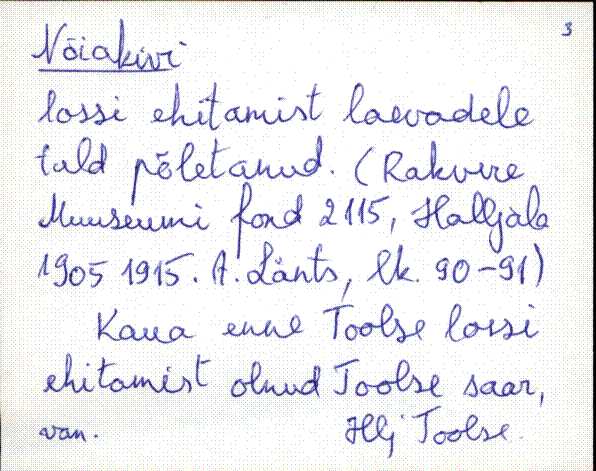 3
Nõiakivi
lossi ehitamist laevadele
tuld põletanud. (Rakvere
Muuseumi fond 2115, Haljala
1905 1915. A. Länts, lk. 90-91)
Kaua enne Toolse lossi
ehitamist olnud Toolse saar,
van. Hlj Toolse.